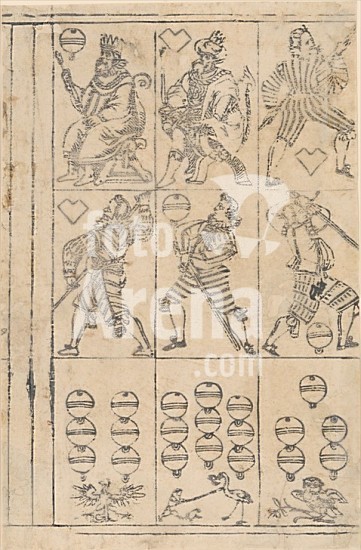 foto
Arena
.com